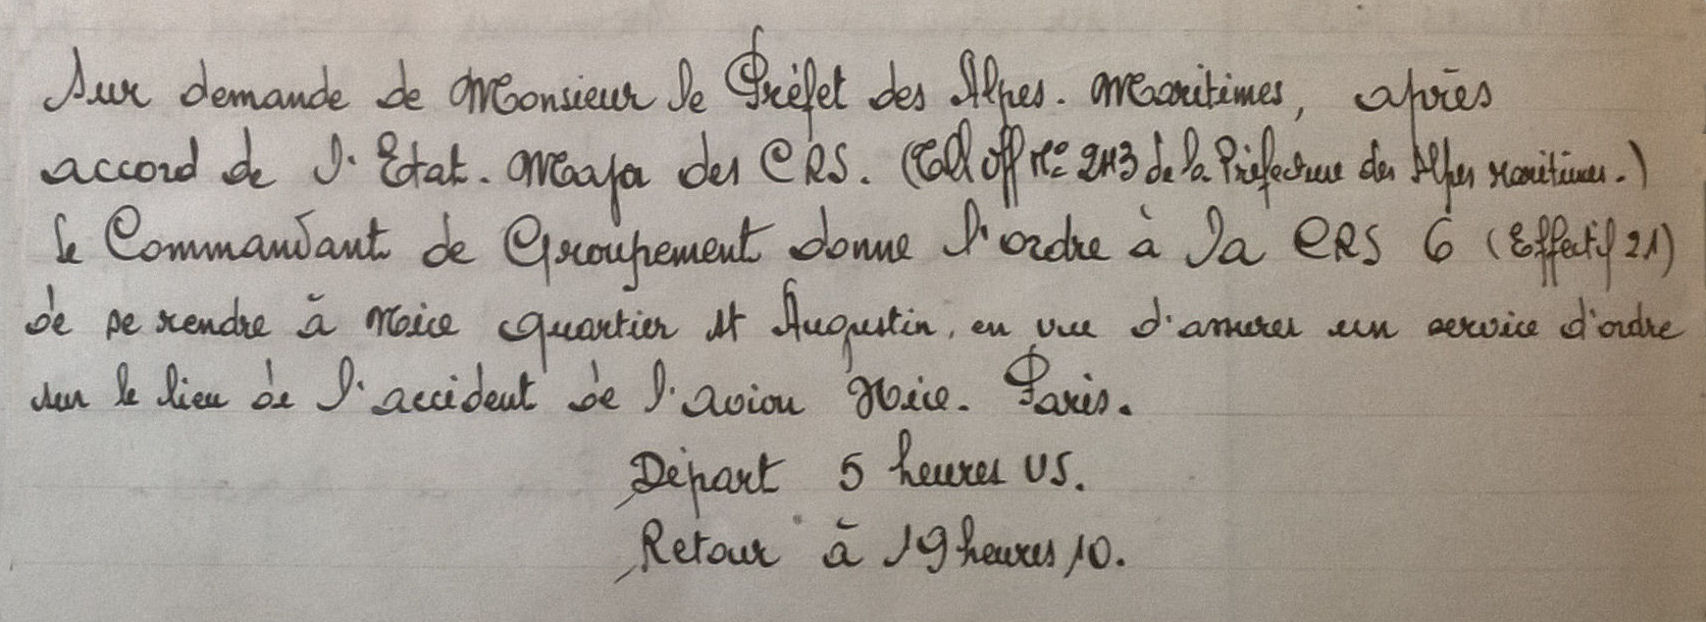 Sur demande de Monsieur le Préfet des Alpes. Maritimes, après
accord de l'Etat. Major des CRS. (Tel off N° 2113 de la Préfecture des Alpes Maritimes.)
le Commandant de Groupement donne l'ordre à la CRS 6 (Effectif 21)
de se rendre à Nice quartier St Augustin, en vue d'assurer un service d'ordre
sur le lieu de l'accident de l'avion Nice. Paris.
Départ 5 heures 45.
Retour à 19 heures 10.